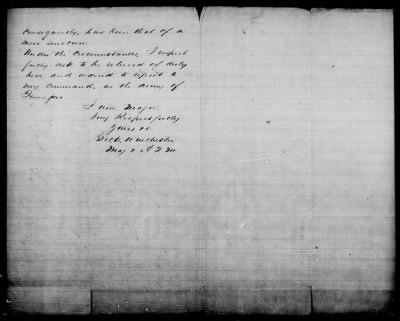 Consequently, has been that of a
mere
Under the Circumstances, I respect
fully ask to be relieved of duty
here and ordered to report to
my Command, in the Army of
I am Major
Very Respectfully
Yours &c
Winchester
Maj & A Q M